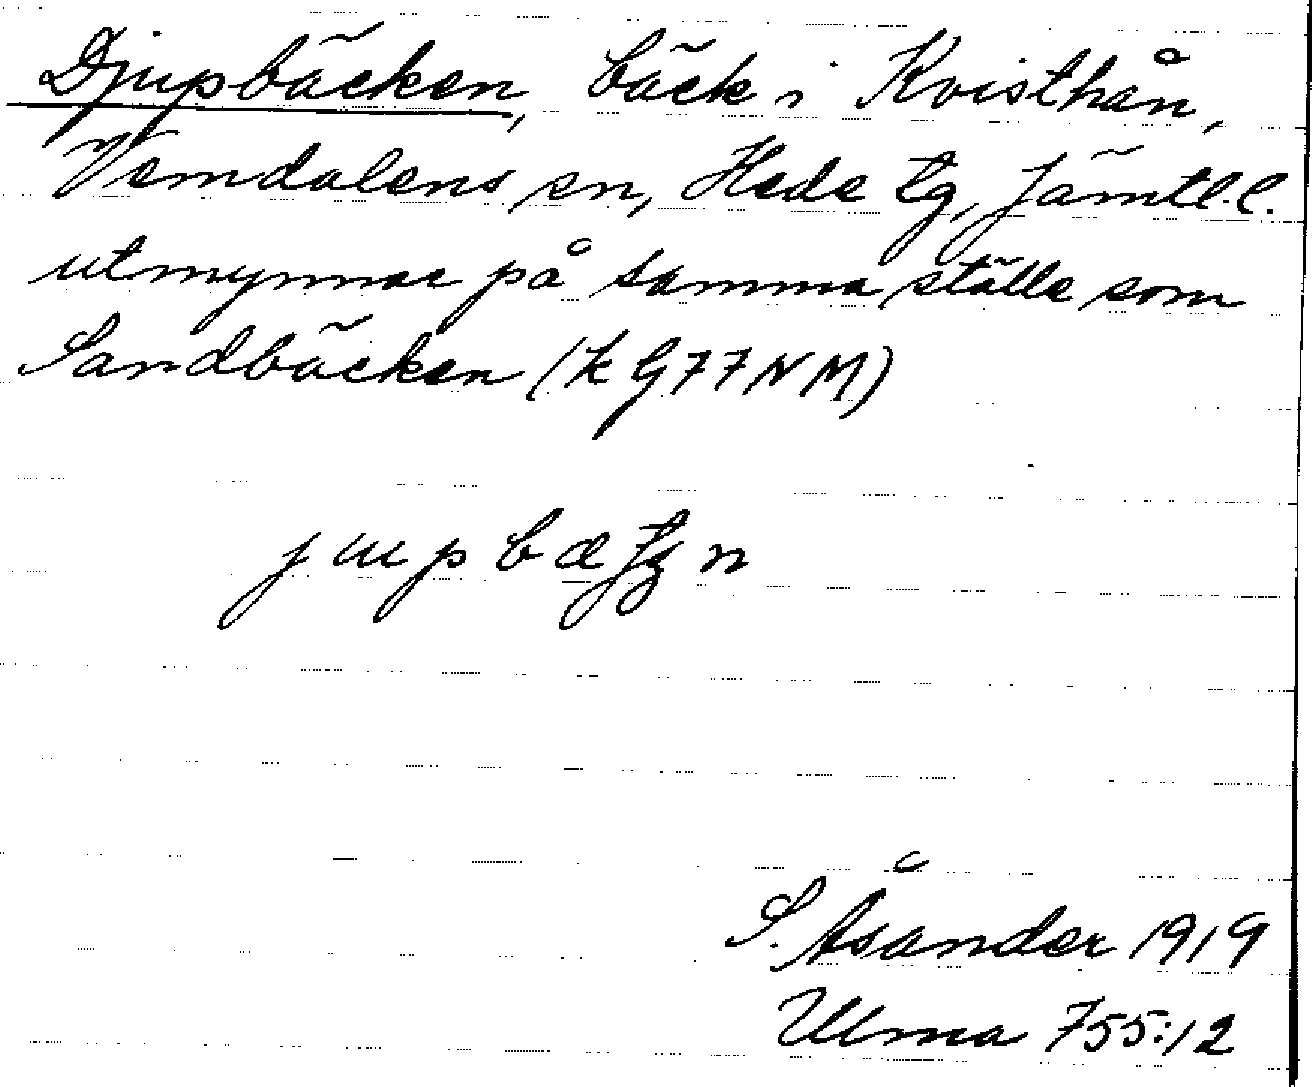 Djupbäcken, bäck i Kvisthån,
Vemdalens sn, Hede tg, Jämtl. l.
utmynnar på samma ställe som
Sandbäcken (k G 77 NM)
S. Åsander 1919
Ulma 755:12